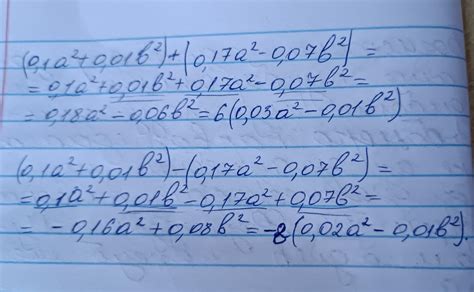 (0,1a²+0,01b²)+(0,17a²-0,07b²)=
=0,1a²+0,01b²+0,17a²-0,07b²=
=0,18a²-0,06b²=6(0,03a²-0,01b²)
(0,1a²+0,01b²)-(0,17a²-0,07b²)=
=0,1a²+0,01b²-0,17a²+0,07b²=
=-0,16a²+0,08b²=-8(0,02a²-0,01b²).